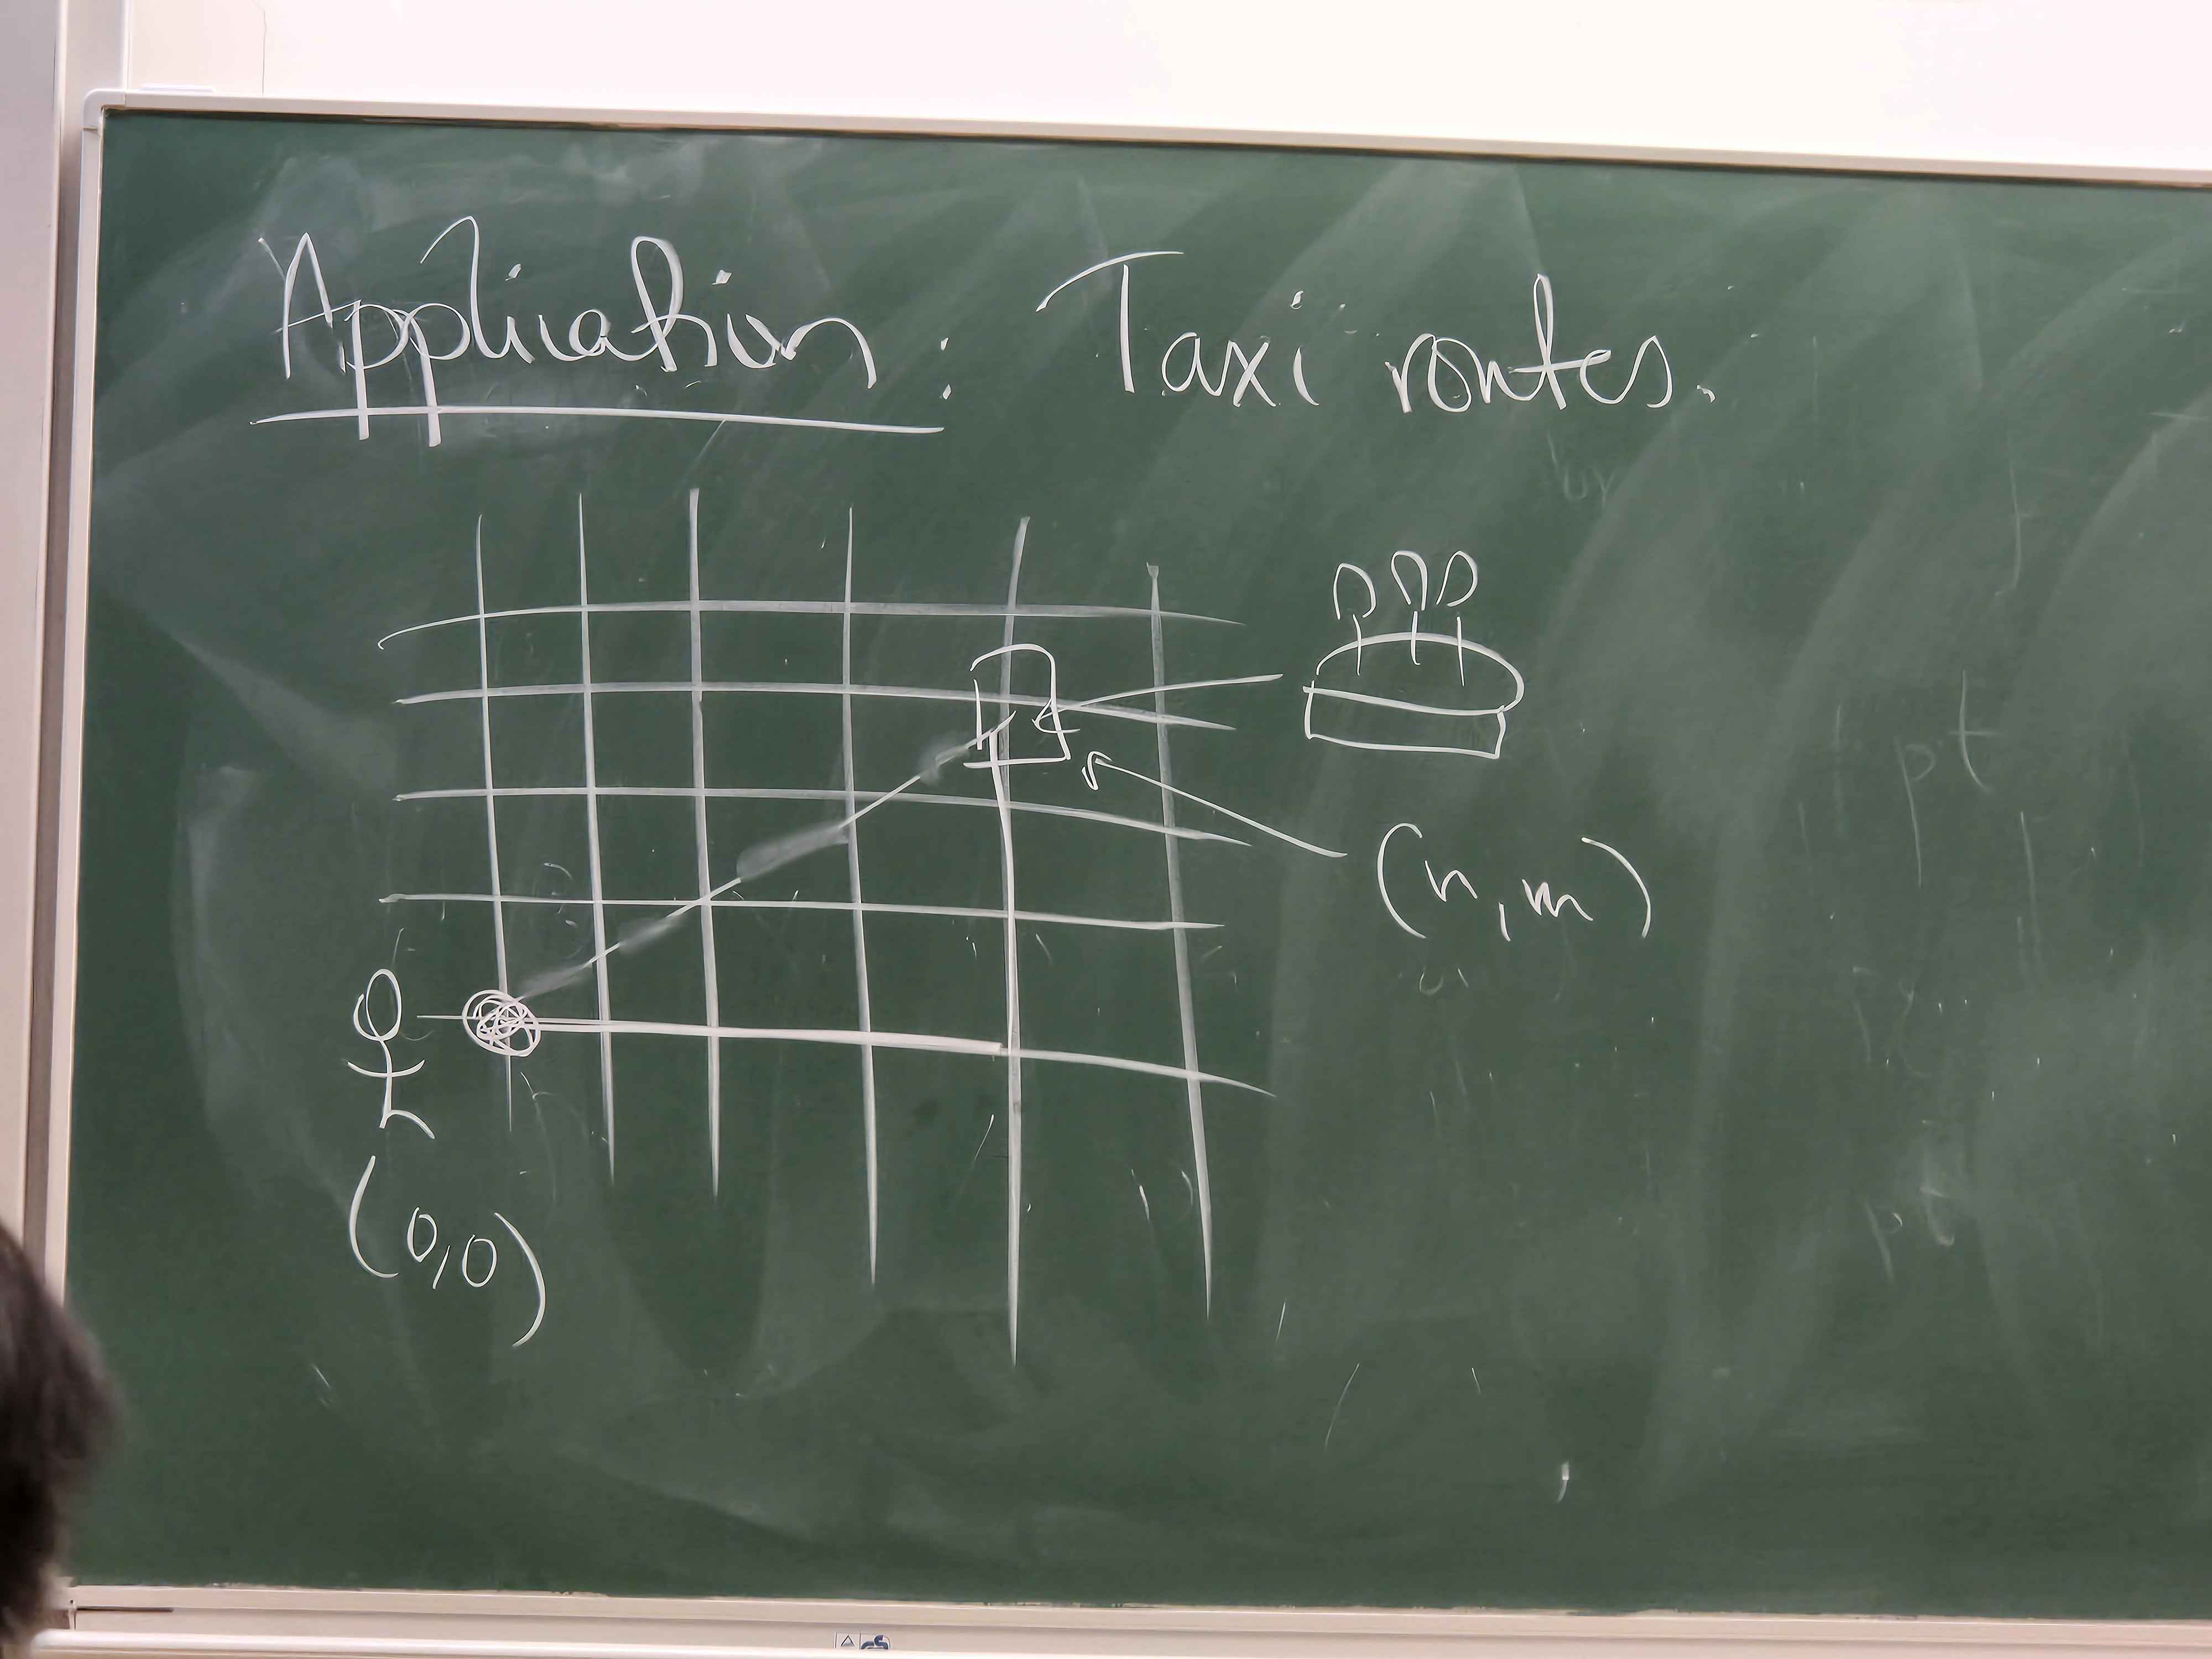 Application: Taxi routes.
(n,m)
(0,0)